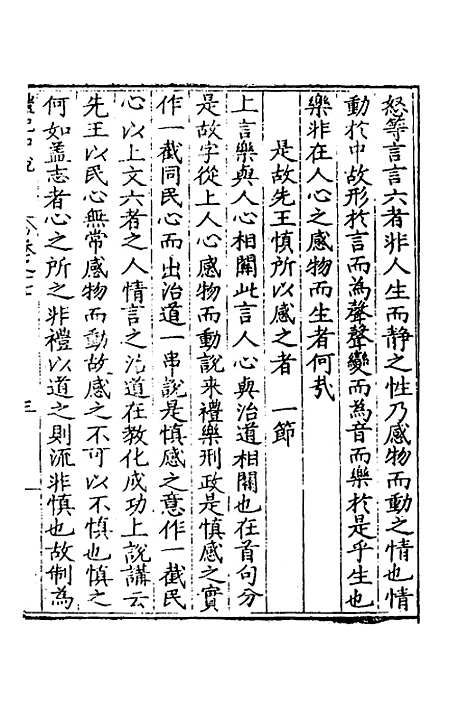 怒等言言六者非人生而静之性乃感物而動之情也情
動於中故形於言而為聲聲變而為音而樂於是乎生也
樂非在人心之感物而生者何㢤
是故先王慎所以感之者　一節
上言樂與人心相關此言人心與治道相關也在首句分
是故字從上人心感物而動說来禮樂刑政是慎感之實
作一截同民心而出治道一串說是慎感之意作一截民
心以上文六者之人情言之治道在教化成功上說講云
先王以民心無常感物而動故感之不可以不慎也慎之
何如盖志者心之所之非禮以道之則流非慎也故制為
三